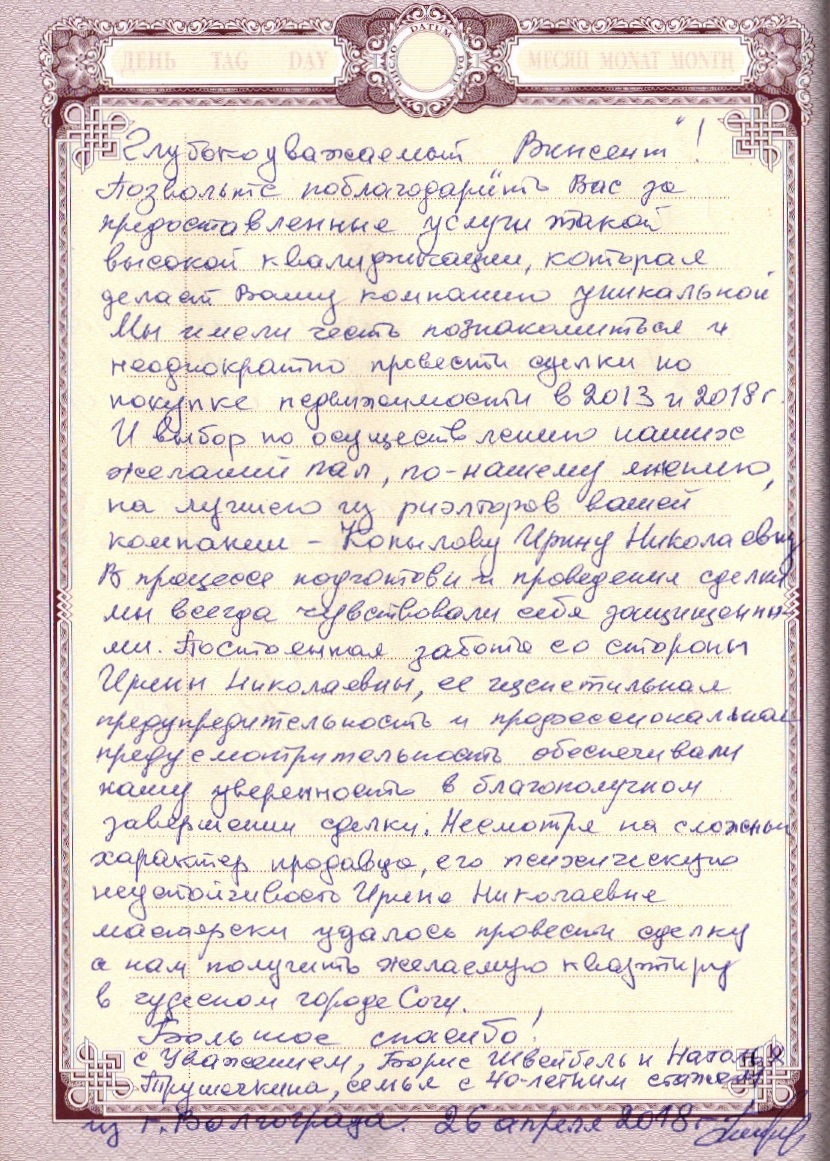 ДЕНЬ TAG DAY
DATUM DATE ЧИСЛО
МЕСЯЦ MONAT MONTH
Глубокоуважаемый "Винсент"!
Позвольте поблагодарить Вас за
предоставленные услуги такой
высокой квалификации, которая
делает Вашу компанию уникальной
Мы имели честь познакомиться и
неоднократно провести сделки по
покупке недвижимости в 2013 и 2018 г.
И выбор по осуществлению наших
желаний пал, по-нашему мнению,
на лучшего из риэлторов вашей
компании – Копылову Ирину Николаевну
В процессе подготовки и проведения сделки
мы всегда чувствовали себя защищенны-
ми. Постоянная забота со стороны
Ирины Николаевны, ее щепетильная
предупредительность и профессиональная
предусмотрительность обеспечивали
нашу уверенность в благополучном
завершении сделки. Несмотря на сложный
характер продавца, его психическую
неустойчивость Ирине Николаевне
мастерски удалось провести сделку
а нам получить желаемую квартиру
в чудесном городе Сочи.
Большое спасибо!
с Уважением, Борис Швейбель и Наталья
Трушочкина, семья с 40-летним стажем
из г. Волгограда. 26 апреля 2018 г.